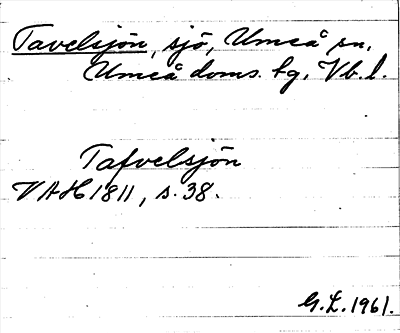 Tavelsjön, sjö, Umeå sn.
Umeå doms. tg. Vb. l.
Tafvelsjön
VAH 1811, s. 38.
G.L. 1961.